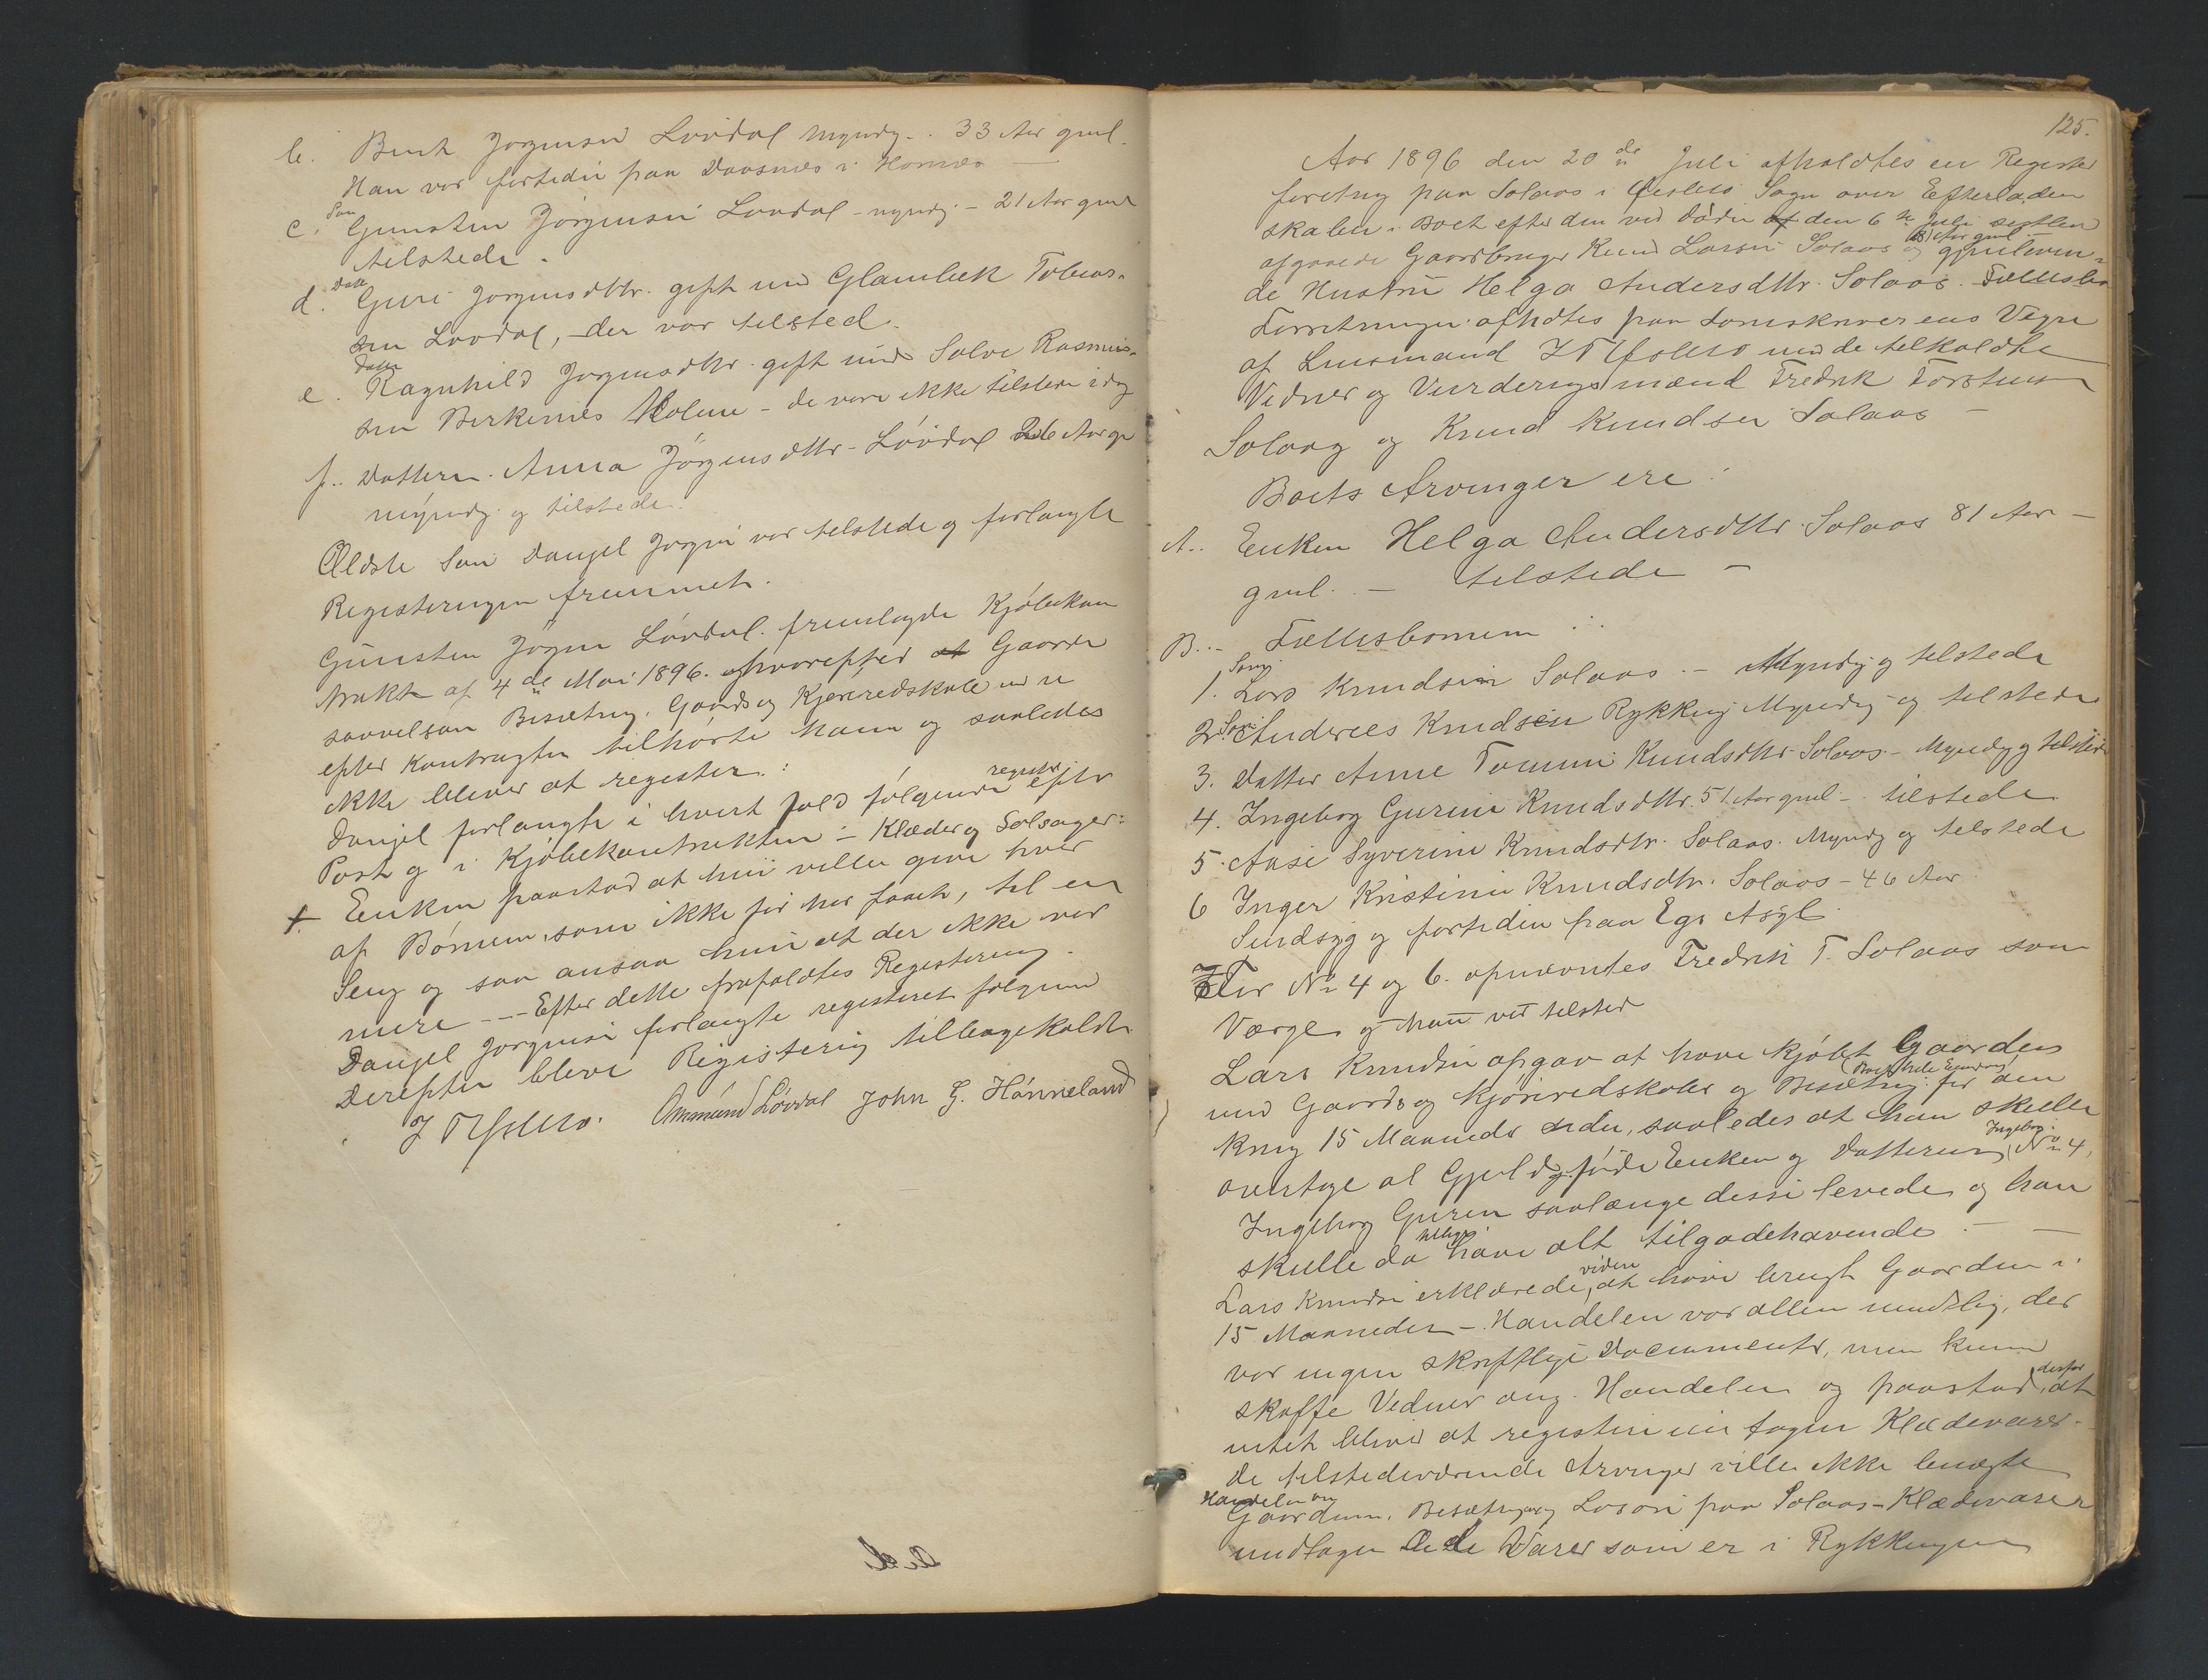 b. Bent Jørgensen Løvdal myndg. 33 Aar gml.
Han var fortiden paa Daasnes i Hornes —
c. Søn Gunsten Jørgensen Løvdal - myndg - 21 Aar gml
tilstede.
d. Datt Guri Jørgensdttr. gift med Glambek Tobias-
sen Løvdal, - der var tilsted.
e. Datter Ragnhild Jørgensdttr. gift med Salve Rasmus-
sen Birkenes Holme - de vare ikke tilstede idag
f. Datteren Anna Jørgensdttr - Løvdal 26 Aar gl
myndg. og tilstede.
Ældste Søn Danjel Jørgen var tilstede og forlangte
Registeringen fremmet.
Gunsten Jørgen Løvdal fremlagde Kjøbekon
trakt af 4de Mai 1896. hvorefter at Gaarden
saavelsom Besætning, Gaards og Kjøreredskale
efter Kontragten tilhørte ham og saaledes
ikke bliver at register:
Danjel forlangte i hvert fald følgende registr efter
Post g i Kjøbekontrakten - Klæder og Sølsager:
+ Enken paastod at hun ville give hver
af Børnene, som ikke før har faaet, til en
Seng og saa ansaa hun at der ikke var
mere --- Efter dette frafaldtes Registering.
Danjel Jørgensen forlangte registeret følgend
Derefter bleve Registering tilbagekaldt.
J T Ysllso. Ommund Løvdal John G. Hønneland
125.
Aar 1896 den 20de Juli afholdtes en Register
foretning paa Solaas i Sogn over Efterladen
skaben i Boet efter den ved døden af den 6te Juli sistlen
afgaaede Gaardbruger Knud Larsen Solaas 81 Aar gml og gjenleven-
de Hustru Helga Andersdttr. Solaas. Fællesbo
Forretningen afholdtes paa Sorenskriverens Vegne
af Lensmand J T Ysllso med de tilkaldte
Vidner og Vurderingsmænd Fredrik Torstensen
Solaas og Knud Knudsen Solaas —
Boets Arvinger ere:
A.. Enken Helga Andersdttr. Solaas 81 Aar -
gml. - tilstede -
B.. - Fællesbornene:
1. Søn Lars Knudsen Solaas. - Myndig og tilstede
2. Søn Anderees Knudsen Rykking Myndig - og tilstede
3. Datter Anne Tomine Knudsdttr Solaas. - Myndg og tilstede
4. Ingeborg Gurine Knudsdttr. 51 Aar gml - tilstede
5. Aase Syverine Knudsdtr. Solaas. Myndg og tilstede
6 Inger Kristine Knudsdtr. Solaas - 46 Aar.
Sindsyg og fortiden paa Egs Asyl.
For No 4 og 6. opnævntes Fredrik T. Solaas som
Værge og han var tilsted
Lars Knudsen opgav at have kjøbt Gaarden
med Gaards og Kjøreredskaber og Besætning for om
kring 15 Maaneder siden, saaledes at han skulle
overtage al Gjeld og føde Enken og Datteren Ingeborg No 4,
Ingeborg Gurine saalænge disse levede og han
skulle da tillige have alt tilgodehavende. —
Lars Knudsen erklærede, videre at have brugt Gaarden i
15 Maaneder - Handelen var allen mundtlig, der
var ingen skriftlige Documenter, men kunde
skaffe Vidner ang. Handelen og paastod derfor, at
intet bliver at registere undtagen Klædevarer.
De tilstedeværende Arvinger ville ikke benægte
Handelen om Gaarden, Besætning og Løsøre paa Solaas - Klædevarer
undtagen de Varer som er i Rykkingen